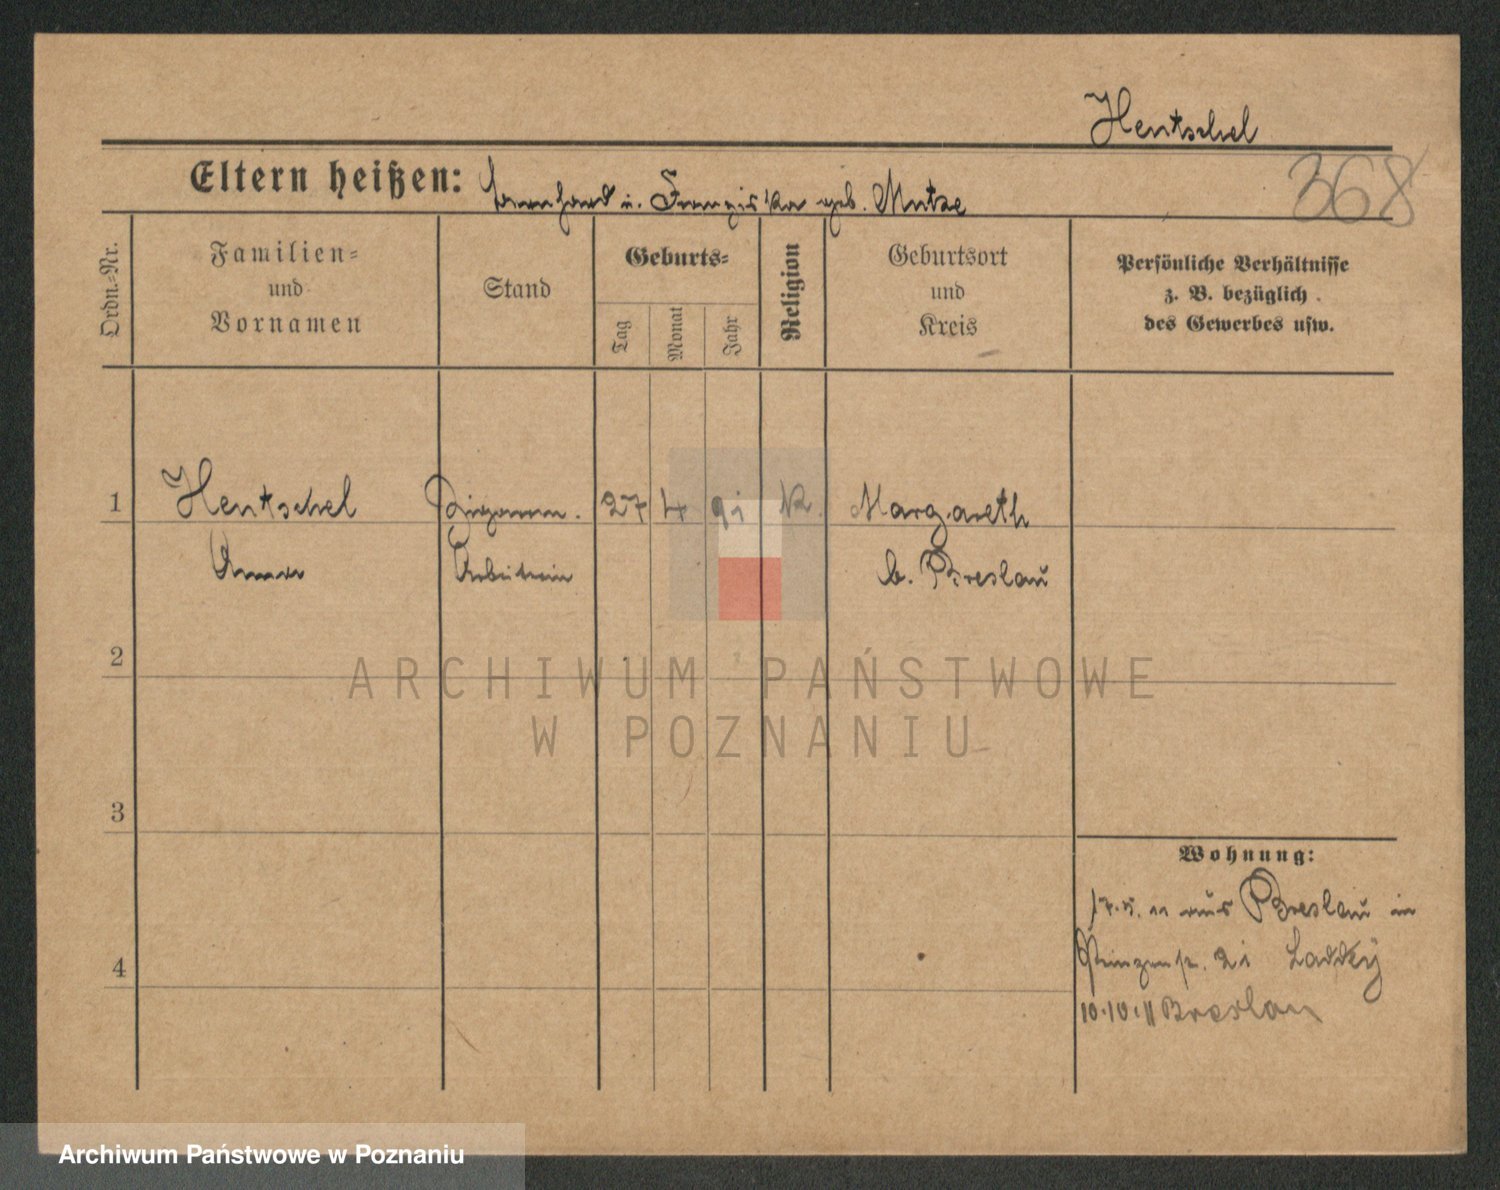 Hentschel
368
Eltern heißen: Bernhard u. Franziska geb. Mutze
Ordn.-Nr.
Familien-
und
Vornamen
Stand
Geburts-
Tag
Monat
Jahr
Religion
Geburtsort
und
Kreis
Persönliche Verhältnisse
z. B. bezüglich
des Gewerbes usw.
1
Hentschel
Zigarren.
27
4
91
K.
Margareth
Anna
Arbeiterin
b. Breslau
2
3
4
ARCHIWUM PAŃSTWOWE
W POZNANIU
Wohnung:
17.5.11 aus Breslau in
Prinzenstr. 21 Ladsky
10.10.11 Breslau
Archiwum Państwowe w Poznaniu